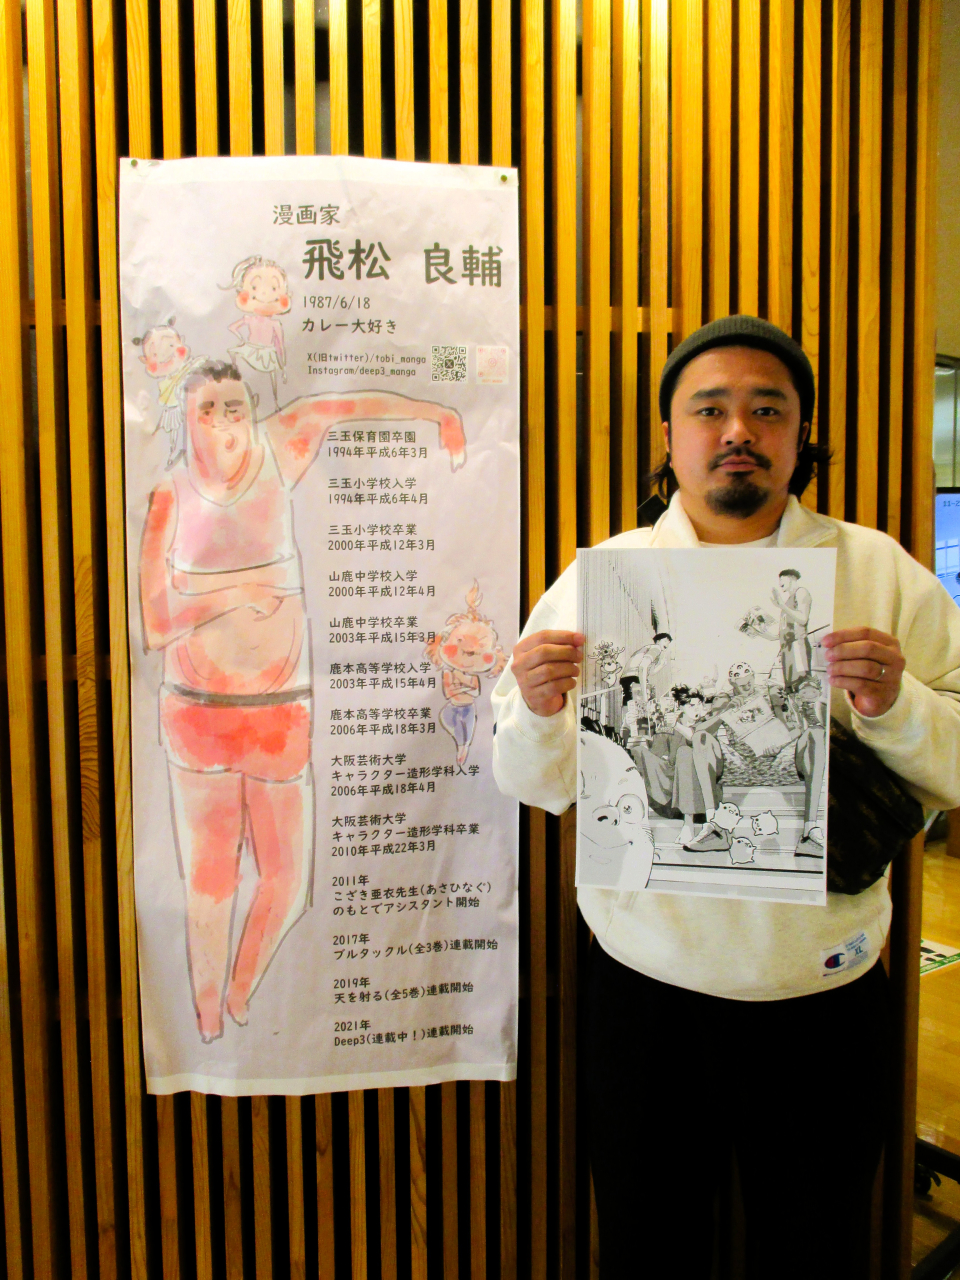 漫画家
飛松 良輔
1987/6/18
カレー大好き
X(旧twitter)/tobi_manga
Instagram/deep3_manga
三玉保育園卒園
1994年平成6年3月
三玉小学校入学
1994年平成6年4月
三玉小学校卒業
2000年平成12年3月
山鹿中学校入学
2000年平成12年4月
山鹿中学校卒業
2003年平成15年3月
鹿本高等学校入学
2003年平成15年4月
鹿本高等学校卒業
2006年平成18年3月
大阪芸術大学
キャラクター造形学科入学
2006年平成18年4月
大阪芸術大学
キャラクター造形学科卒業
2010年平成22年3月
2011年
こざき亜衣先生(あさひなぐ)
のもとでアシスタント開始
2017年
ブルタックル(全3巻)連載開始
2019年
天を射る(全5巻)連載開始
2021年
Deep3(連載中！)連載開始
XL